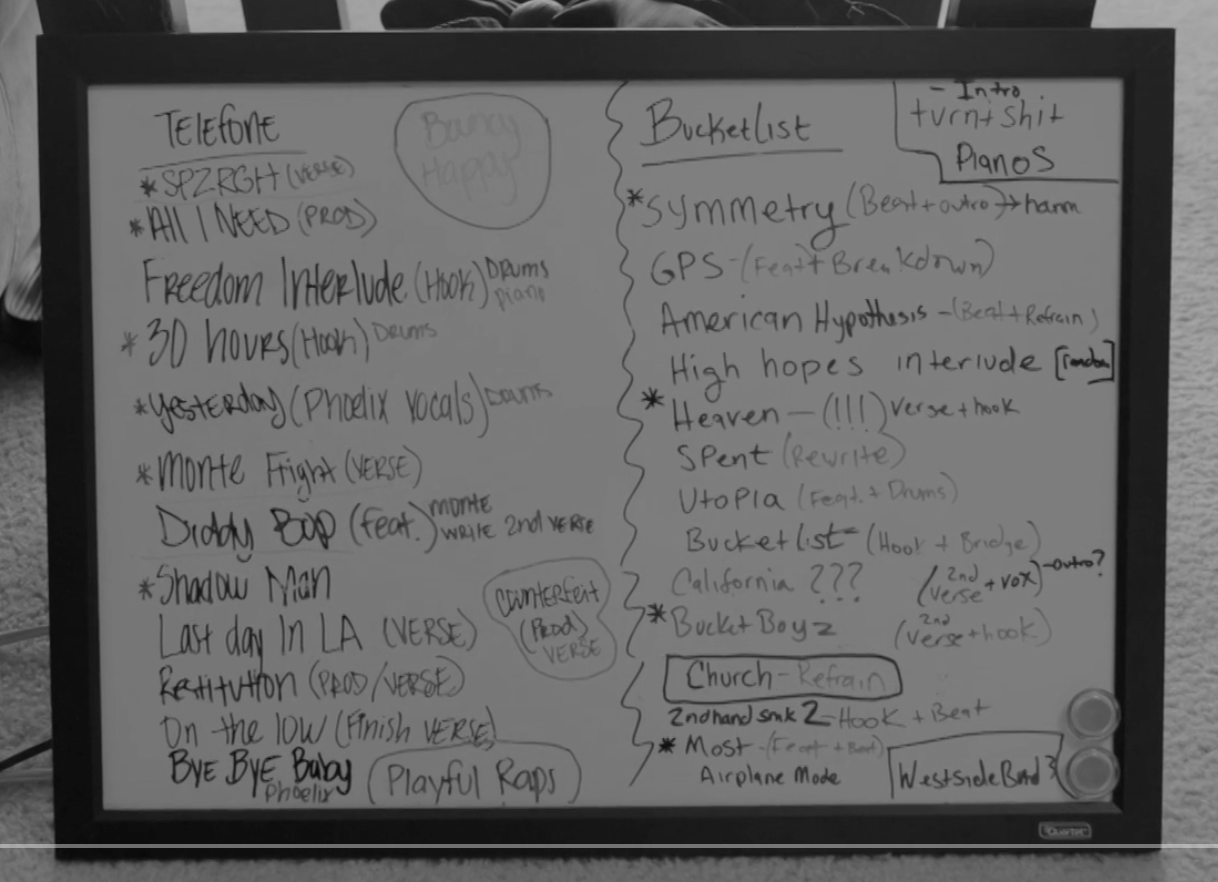 TELEFONE
Bouncy
Happy
*SPZRGH (VERSE)
*All I NEED (PROD)
Freedom Interlude (Hook) Drums
piano
*30 hours (Hook) Drums
*Yesterday (Phoelix vocals) Drums
*Monte Fright (VERSE)
Diddy Bop (feat.) monte
write 2nd verse
*Shadow Man
Last day In LA (VERSE)
Counterfeit
(Prod)
VERSE
Restitution (PROD/VERSE)
On the low (Finish VERSE)
Bye Bye Baby
Phoelix
Playful Raps
BucketList
- Intro
+urn+ shit
Pianos
*Symmetry (Beat + outro) → harm
GPS - (Feat + Breakdown)
American Hypothesis - (Beat + Refrain)
High hopes interlude
*Heaven - (!!!) verse + hook
Spent (Rewrite)
Utopia (Feat. + Drums)
Bucketlist - (Hook + Bridge)
California ??? (2nd verse + vox) - outro?
*Bucket Boyz (2nd verse + hook)
Church - Refrain
2ndhand smk 2 - Hook + Beat
*Most - (Feat + Beat)
Airplane Mode
Quartet